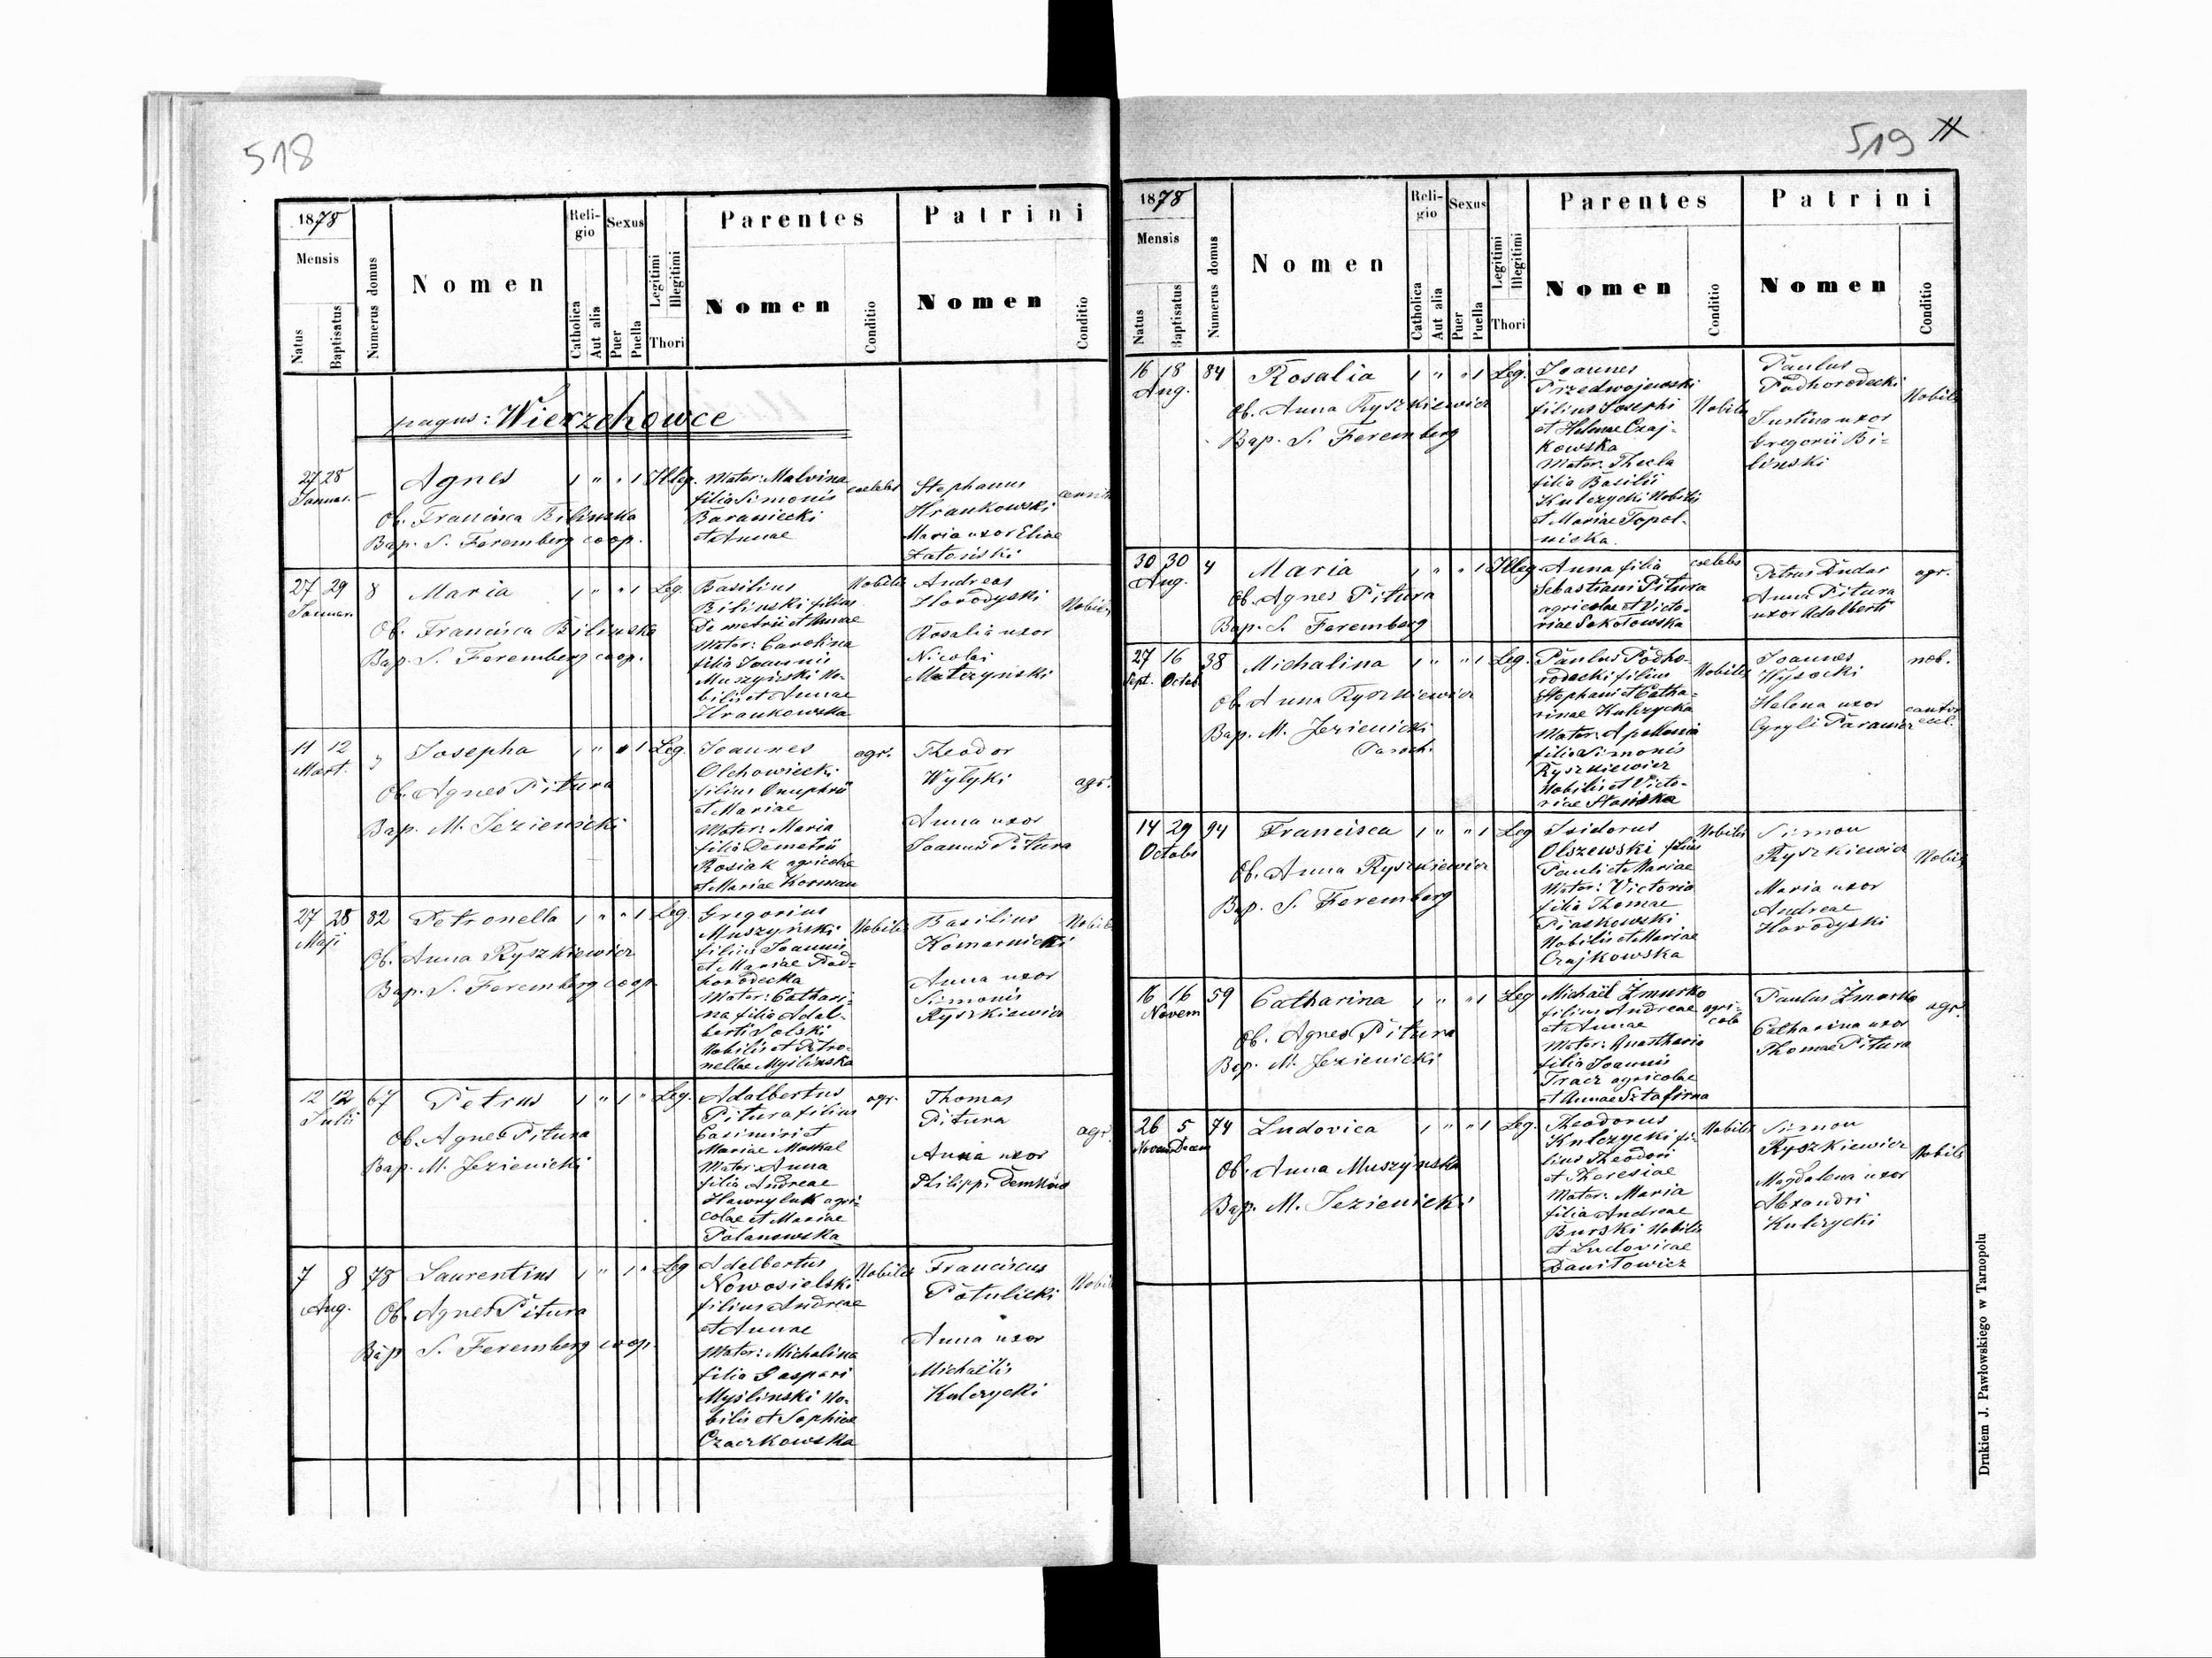 518
1878
Mensis
Natus
Baptisatus
Numerus domus
Nomen
Religio
Catholica
Aut alia
Sexus
Puer
Puella
Legitimi
Illegitimi
Thori
Parentes
Nomen
Conditio
Patrini
Nomen
Conditio
pagus: Wierzchowce
27 28
Januar. —
Agnes
Ob. Francisca Bilinska
Bap. S. Feremberg coop.
1 " " 1 Illeg.
Mater: Malvina
filia Simonis
Baraniecki
et Annae
caelebs
Stephanus
Hrankowski
Maria uxor Eliae
Zatoński
27 29
Januar.
8
Maria
Ob. Francisca Bilinska
Bap. S. Feremberg coop.
1 " " 1 Leg.
Basilius
Bilinski filius
Demetrii et Annae
Mater: Carolina
filia Joannis
Muszyński No-
bilis et Annae
Hrankowska
Nobilis
Andreas
Horodyski
Rosalia uxor
Nicolai
Matczyński
Nobilis
11 12
Mart.
Josepha
Ob. Agnes Pitura
Bap. M. Jezienicki
1 " " 1 Leg.
Joannes
Olchowiecki
filius Onuphrii
et Mariae
Mater: Maria
filia Demetrii
Rosiak agricolae
et Mariae Korman
agr.
Theodor
Wytyki
Anna uxor
Joannis Pitura
agr.
27 28
Maji
82
Petronella
Ob. Anna Ryszkiewicz
Bap. S. Feremberg coop.
1 " " 1 Leg.
Gregorius
Muszyński
filius Joannis
et Mariae Pod-
horodecka
Mater: Cathari-
na filia Adal-
berti Solski
Nobilis et Petro-
nellae Myślinska
Nobilis
Basilius
Komarnicki
Anna uxor
Simonis
Ryszkiewicz
Nobilis
12 12
Julii
67
Petrus
Ob. Agnes Pitura
Bap. M. Jezienicki
1 " 1 " Leg.
Adalbertus
Pitura filius
Casimiri et
Mariae Moskal
Mater: Anna
filia Andreae
Hawryluk agri-
colae et Mariae
Polanowska
agr.
Thomas
Pitura
Anna uxor
Philippi Demków
agr.
7 8
Aug.
78
Laurentius
Ob. Agnes Pitura
Bap. S. Feremberg coop.
1 " 1 " Leg
Adalbertus
Nowosielski
filius Andreae
et Annae
Mater: Michalina
filia Gaspari
Myślinski No-
bilis et Sophiae
Czaczkowska
Nobilis
Franciscus
Potulicki
Anna uxor
Michaëlis
Kulczycki
Nobilis
519
1878
Mensis
Natus
Baptisatus
Numerus domus
Nomen
Religio
Catholica
Aut alia
Sexus
Puer
Puella
Legitimi
Illegitimi
Thori
Parentes
Nomen
Conditio
Patrini
Nomen
Conditio
16 18
Aug.
84
Rosalia
Ob. Anna Ryszkiewicz
Bap. S. Feremberg
1 " " 1 Leg.
Joannes
Przedwojewski
filius Josephi
et Helenae Czaj-
kowska
Mater: Thecla
filia Basilii
Kulczycki Nobilis
et Mariae Topol-
niska.
Nobilis
Paulus
Podhorodecki
Justina uxor
Gregorii Bi-
linski
Nobilis
30 30
Aug.
4
Maria
Ob. Agnes Pitura
Bap. S. Feremberg
1 " " 1 Illeg
Anna filia
Sebastiani Pitura
agricolae et Victo-
riae Sokołowska
caelebs
Petrus Dudar
Anna Pitura
uxor Adalberti
agr.
27 16
Sept. Octob.
38
Michalina
Ob. Anna Ryszkiewicz
Bap. M. Jezienicki
Paroch.
1 " " 1 Leg.
Paulus Podho-
rodecki filius
Stephani et Catha-
rinae Kulczycka
Mater: Apollonia
filia Simonis
Ryszkiewicz
Nobilis et Victo-
riae
Nobilis
Joannes
Wysocki
Helena uxor
Cyryli
nob.
cantor
eccl.
14 29
Octobr
94
Francisca
Ob. Anna Ryszkiewicz
Bap. S. Feremberg
1 " " 1 Leg
Isidorus
Olszewski filius
Pauli et Mariae
Mater: Victoria
filia Thomae
Piaskowski
Nobilis et Mariae
Czajkowska
Nobilis
Simon
Ryszkiewicz
Maria uxor
Andreae
Horodyski
Nobilis
16 16
Novem
59
Catharina
Ob. Agnes Pitura
Bap. M. Jezienicki
1 " " 1 Leg
Michaël Żmurko
filius Andreae
et Annae
Mater: Anasthasia
filia Joannis
Tracz agricolae
et Annae
agri-
cola
Paulus Żmurko
Catharina uxor
Thomae Pitura
agr.
26 5
Novem Decem
74
Ludovica
Ob. Anna Muszyńska
Bap. M. Jezienicki
1 " " 1 Leg.
Theodorus
Kulczycki fi-
lius Theodori
et Theresiae
Mater: Maria
filia Andreae
Burski Nobilis
et Ludovicae
Daniłowicz
Nobilis
Simon
Ryszkiewicz
Magdalena uxor
Alexandri
Kulczycki
Nobilis
Drukiem J. Pawłowskiego w Tarnopolu